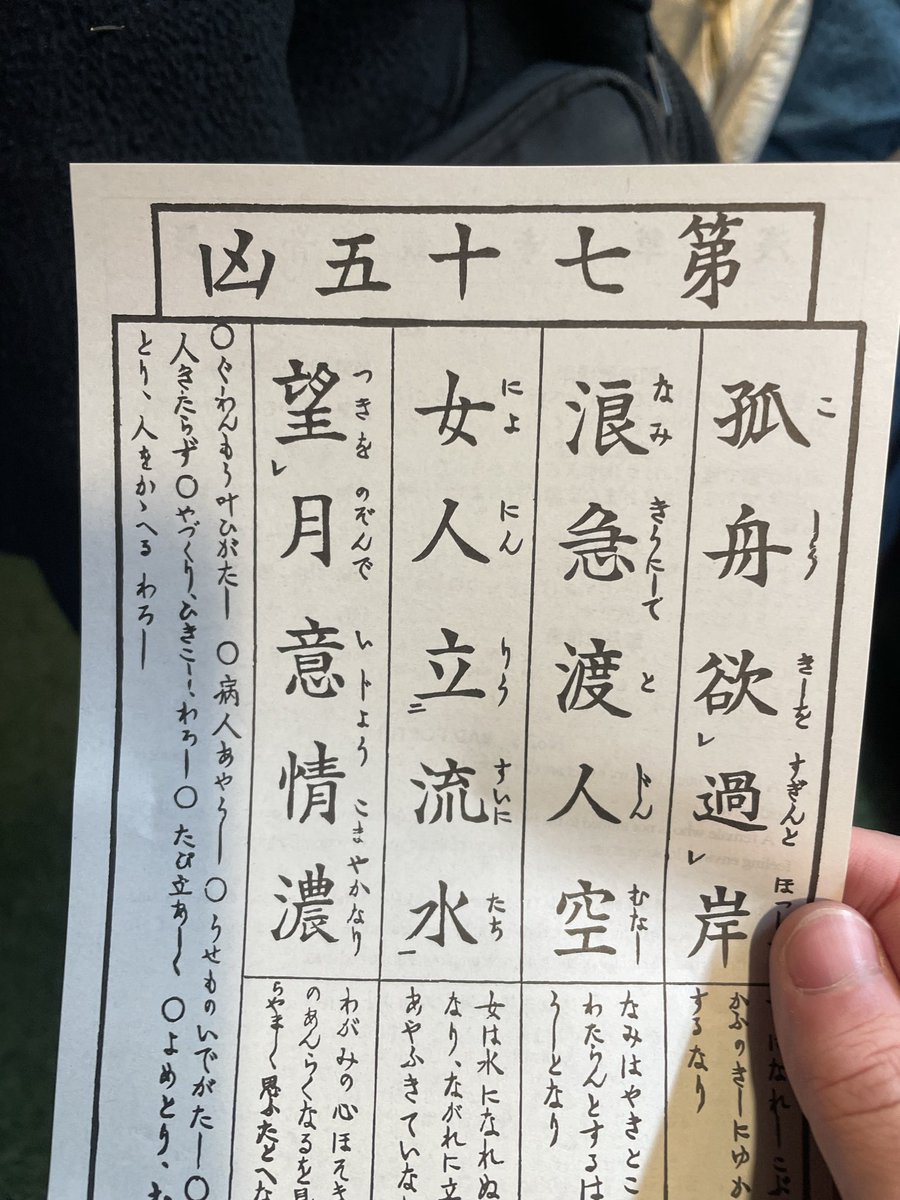 第七十五凶
孤舟欲過岸
こ しう きしを すぎんと
はなれしこぶ
かふのきしにゆか
するなり
浪急渡人空
なみ きうにして と じん むなし
なみはやきとこ
わたらんとするは
うしとなり
女人立流水
によ にん りう すいに たち
女は水になれぬ
なり、ながれに立
あやふきていな
望月意情濃
つきを のぞんで いじよう こまやかなり
わがみの心ほそき
のあんらくなるを見
らやましく思ふたとへな
○ぐわんもう叶ひがたし ○病人あやうし ○うせものいでがたし○
人きたらず○やづくり、ひきこし、わろし ○たび立あしく ○よめとり、む
とり、人をかゝへる わろし